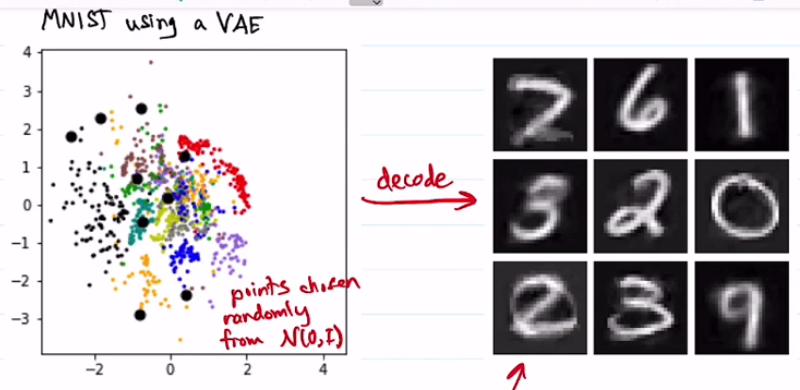 MNIST using a VAE
4
3
2
1
0
−1
−2
−3
−2 0 2 4
points chosen
randomly
from N(0,I)
decode
2 6 1
3 2 0
2 3 9